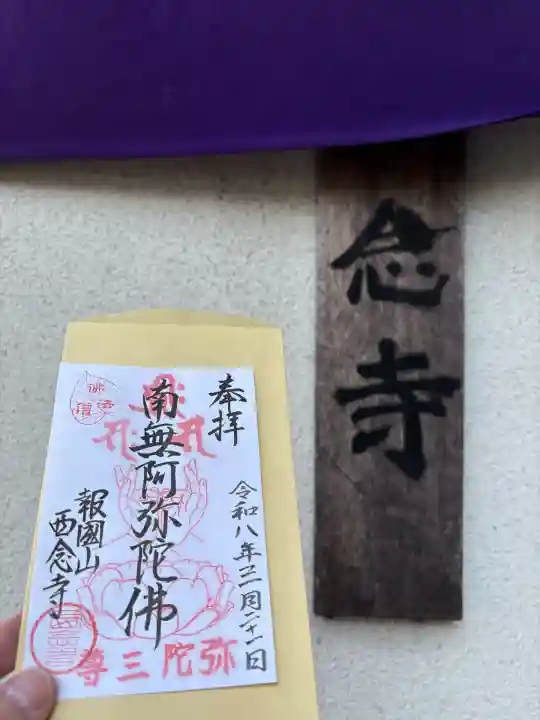 奉拝
令和八年三月二十一日
南無阿弥陀佛
報國山
西念寺
弥陀三尊
念寺